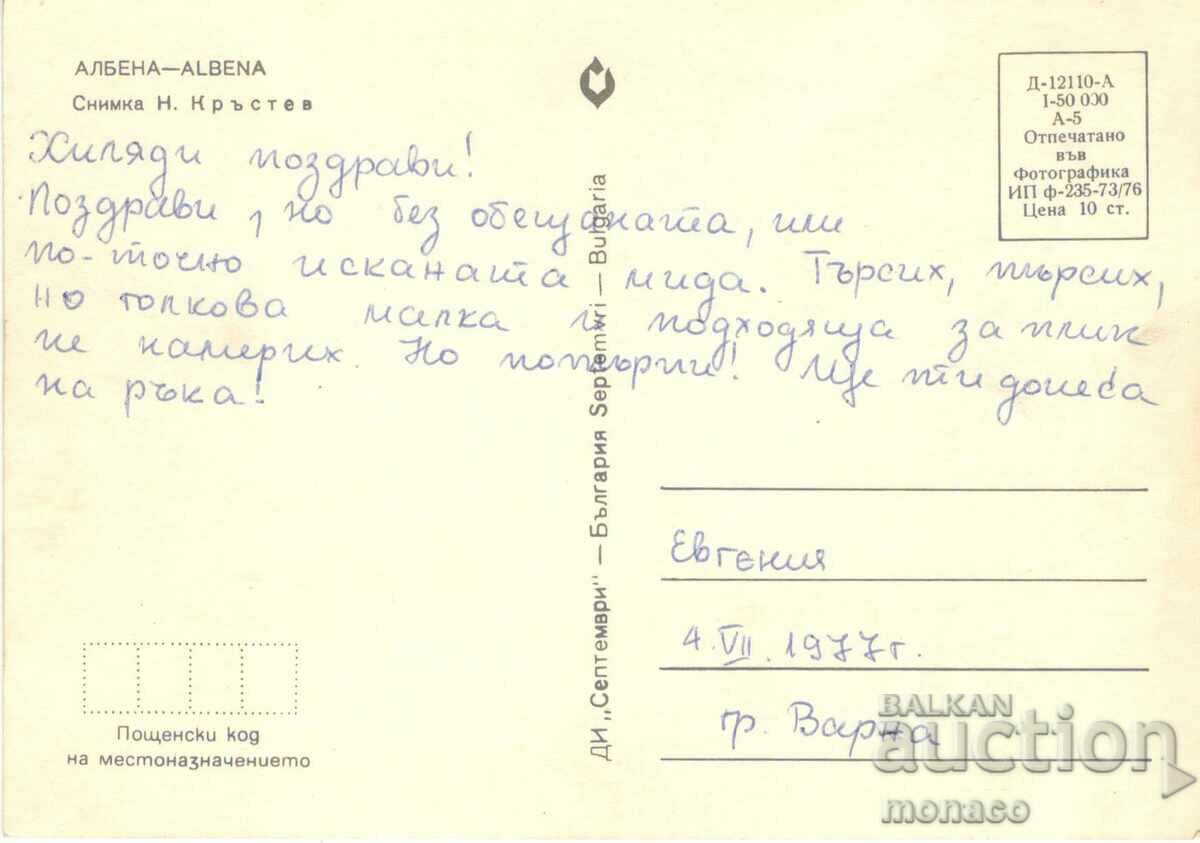 АЛБЕНА—ALBENA
Снимка Н. Кръстев
Д-12110-А
I-50 000
А-5
Отпечатано
във
Фотографика
ИП ф-235-73/76
Цена 10 ст.
Хиляди поздрави!
Поздрави, но без обещаната, или
по-точно исканата мида. Търсих, търсих,
но толкова малка и подходяща за плик
не намерих. Но потърпи! Ще ти донеса
на ръка!
ДИ „Септември" — България Septemvri — Bulgaria
Евгения
4. VII. 1977 г.
гр. Варна
Пощенски код
на местоназначението
BALKAN
auction
monaco